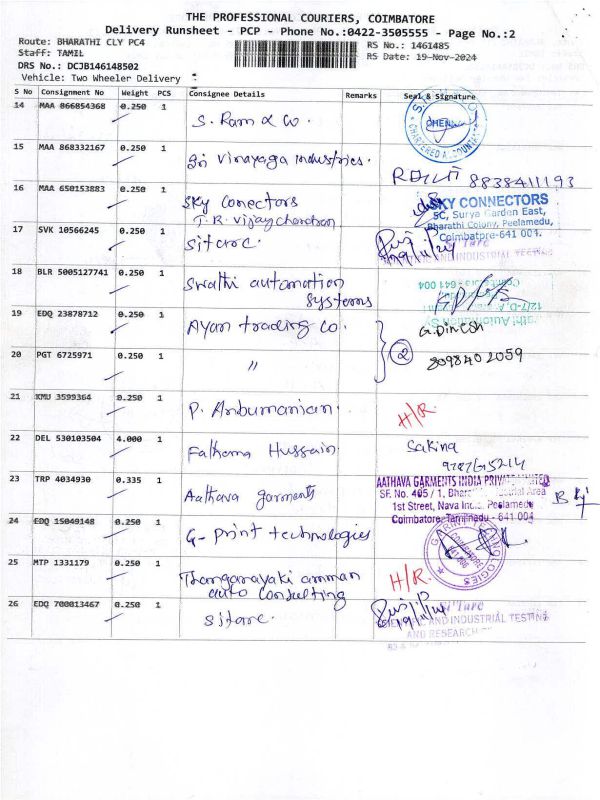 THE PROFESSIONAL COURIERS, COIMBATORE
Delivery Runsheet - PCP - Phone No.:0422-3505555 - Page No.:2
Route: BHARATHI CLY PC4
RS No.: 1461485
Staff: TAMIL
RS Date: 19-Nov-2024
DRS No.: DCJB146148502
Vehicle: Two Wheeler Delivery
S No Consignment No Weight PCS Consignee Details Remarks Seal & Signature
14 MAA 866854368 0.250 1 S. Ram & Co.
CHENNAI
CHARTERED ACCOUNTANTS
15 MAA 868332167 0.250 1 Sri Vinayaga Industries.
8838411193
16 MAA 650153883 0.250 1 Sky Conectors
T. R. Vijaychandran
SKY CONNECTORS
5C, Surya Garden East,
Bharathi Colony, Peelamedu,
Coimbatpre-641 004.
17 SVK 10566245 0.250 1 Sitarc.
19/11/24
AND INDUSTRIAL TESTING
18 BLR 5005127741 0.250 1 Swathi automation
Systems
19 EDQ 23878712 0.250 1 Ayan trading Co.
G. Dinesh
20 PGT 6725971 0.250 1 "
2
8098402059
21 KMU 3599364 0.250 1 P. Anbumanian.
H/R.
22 DEL 530103504 4.000 1 Fathama Hussain.
Sakina
23 TRP 4034930 0.335 1 Aathava garments
AATHAVA GARMENTS INDIA PRIVATE LIMITED
SF. No. 405 / 1, Bharathi Industrial Area
1st Street, Nava India, Peelamedu
Coimbatore, Tamilnadu - 641 004
24 EDQ 15049148 0.250 1 G- Print technologies
25 MTP 1331179 0.250 1 Thanganayaki amman
auto Consulting
H/R.
26 EDQ 700013467 0.250 1 Sitarc.
Si'Tarc
SCIENTIFIC AND INDUSTRIAL TESTING
AND RESEARCH